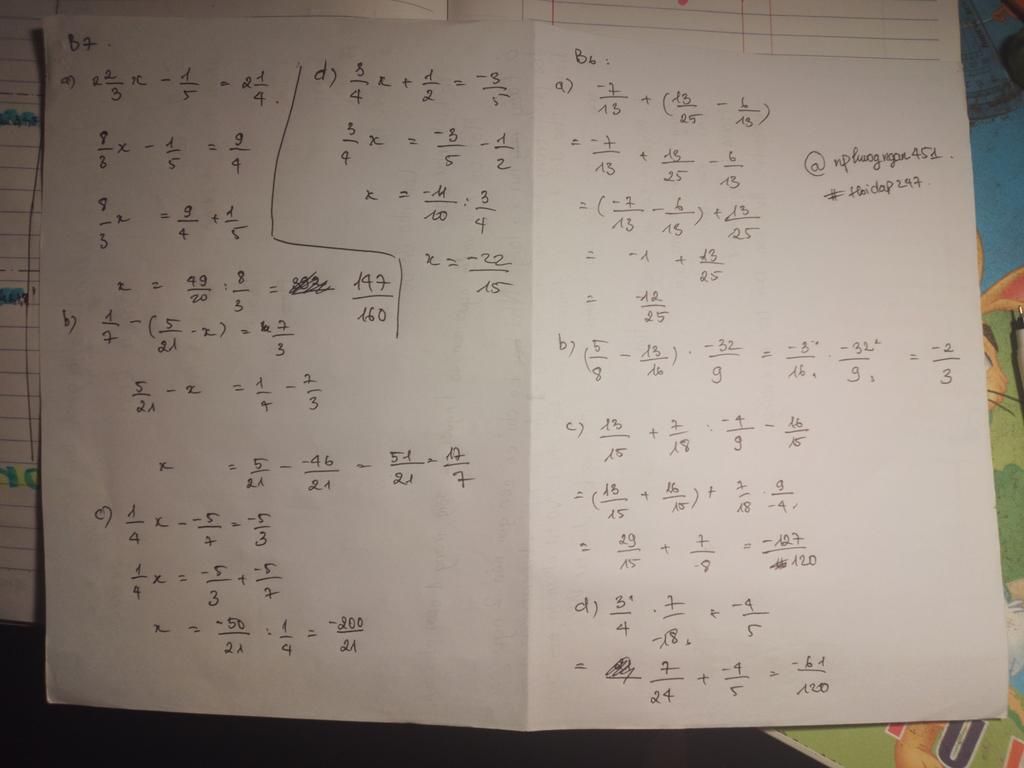 B7.
a) 2 2/3 x - 1/5 = 2 1/4.
8/3 x - 1/5 = 9/4
8/3 x = 9/4 + 1/5
x = 49/20 : 8/3 = 147/160
b) 1/7 - (5/21 - x) = 7/3
5/21 - x = 1/7 - 7/3
x = 5/21 - -46/21 = 51/21 = 17/7
c) 1/4 x - -5/7 = -5/3
1/4 x = -5/3 + -5/7
x = -50/21 : 1/4 = -200/21
d) 3/4 x + 1/2 = -3/5
3/4 x = -3/5 - 1/2
x = -11/10 : 3/4
x = -22/15
B6:
a) -7/13 + (13/25 - 6/13)
= -7/13 + 13/25 - 6/13
= (-7/13 - 6/13) + 13/25
= -1 + 13/25
= -12/25
b) (5/8 - 13/16) . -32/9 = -3/16 . -32/9 = -2/3
c) 13/15 + 7/18 : -4/9 - 16/15
= (13/15 + 16/15) + 7/18 . 9/-4
= 29/15 + 7/-8 = -127/120
d) 3/4 . 7/-18 + -4/5
= 7/24 + -4/5 = -61/120
@nphuogngan451.
#hoidap247.